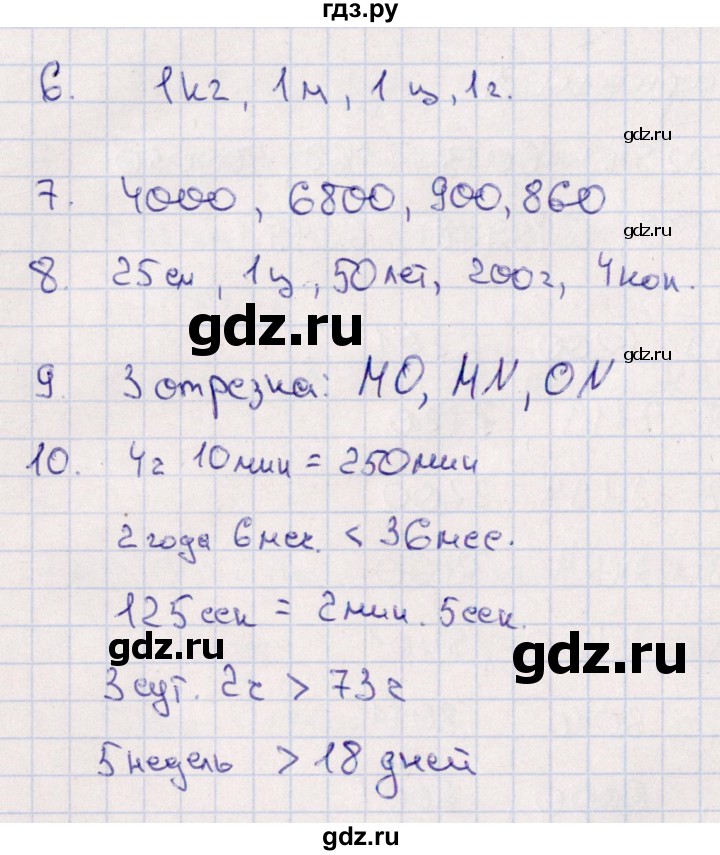 гдз.ру
6. 1кг, 1м, 1ц, 1г.
gdz.ru
7. 4000, 6800, 900, 860
gdz.ru
8. 25см, 1ц, 50лет, 200г, 4коп.
gdz.ru
gdz.ru
9. 3 отрезка: MO, MN, ON
10. 4г 10мин = 250мин
2 года 6мес. < 36мес.
125сек = 2мин. 5сек.
gdz.ru
gdz.ru
3сут. 2ч > 73ч
5недель > 18 дней
gdz.ru